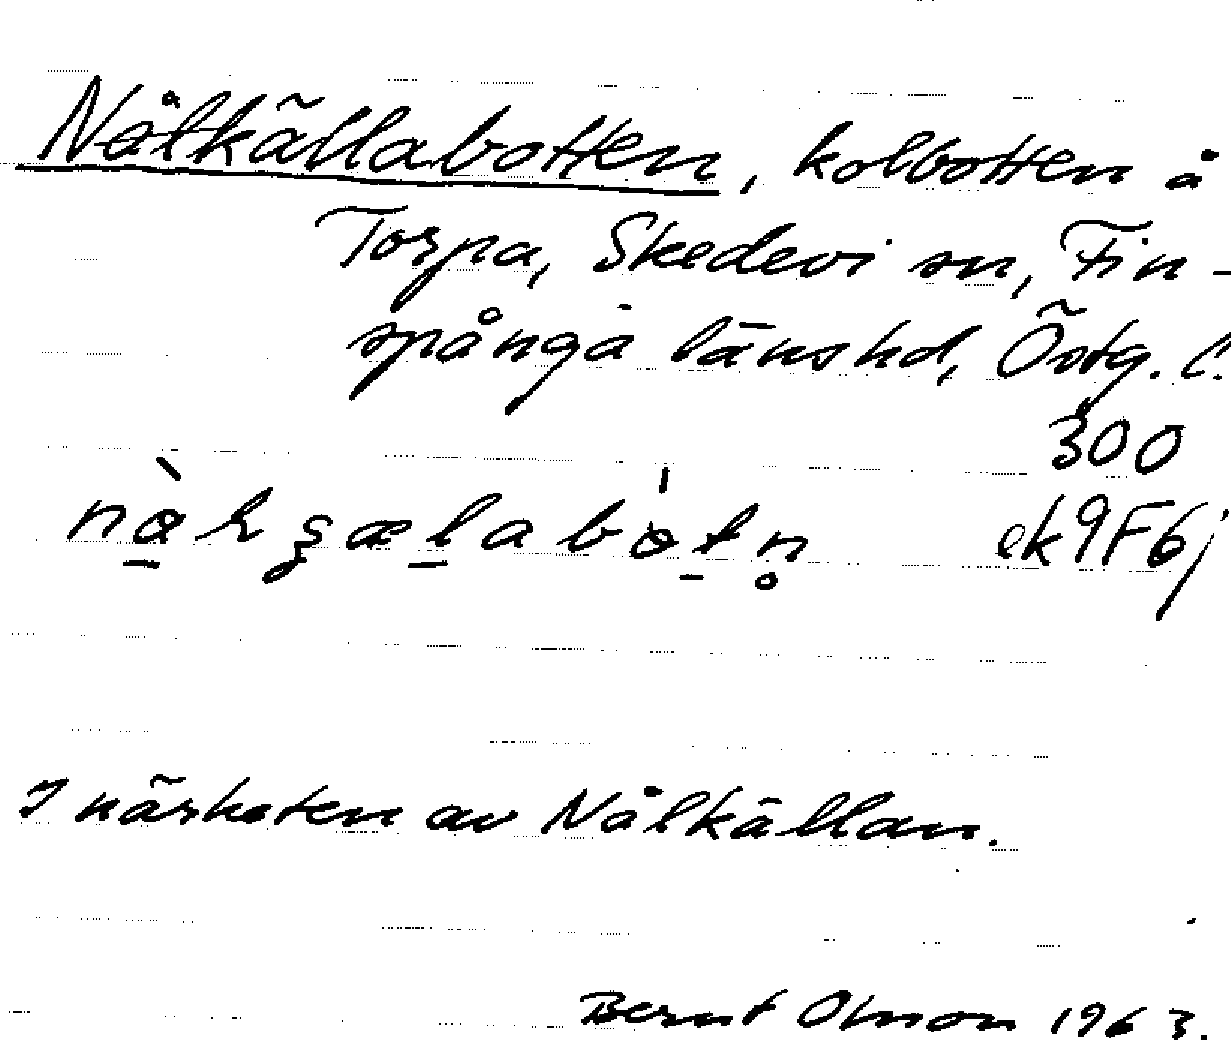 Nålkällabotten, kolbotten å
Torpa, Skedevi sn, Fin-
spånga länshd, Östg. l.
300
ek9F6j
I närheten av Nålkällan.
Bernt Olsson 1963.